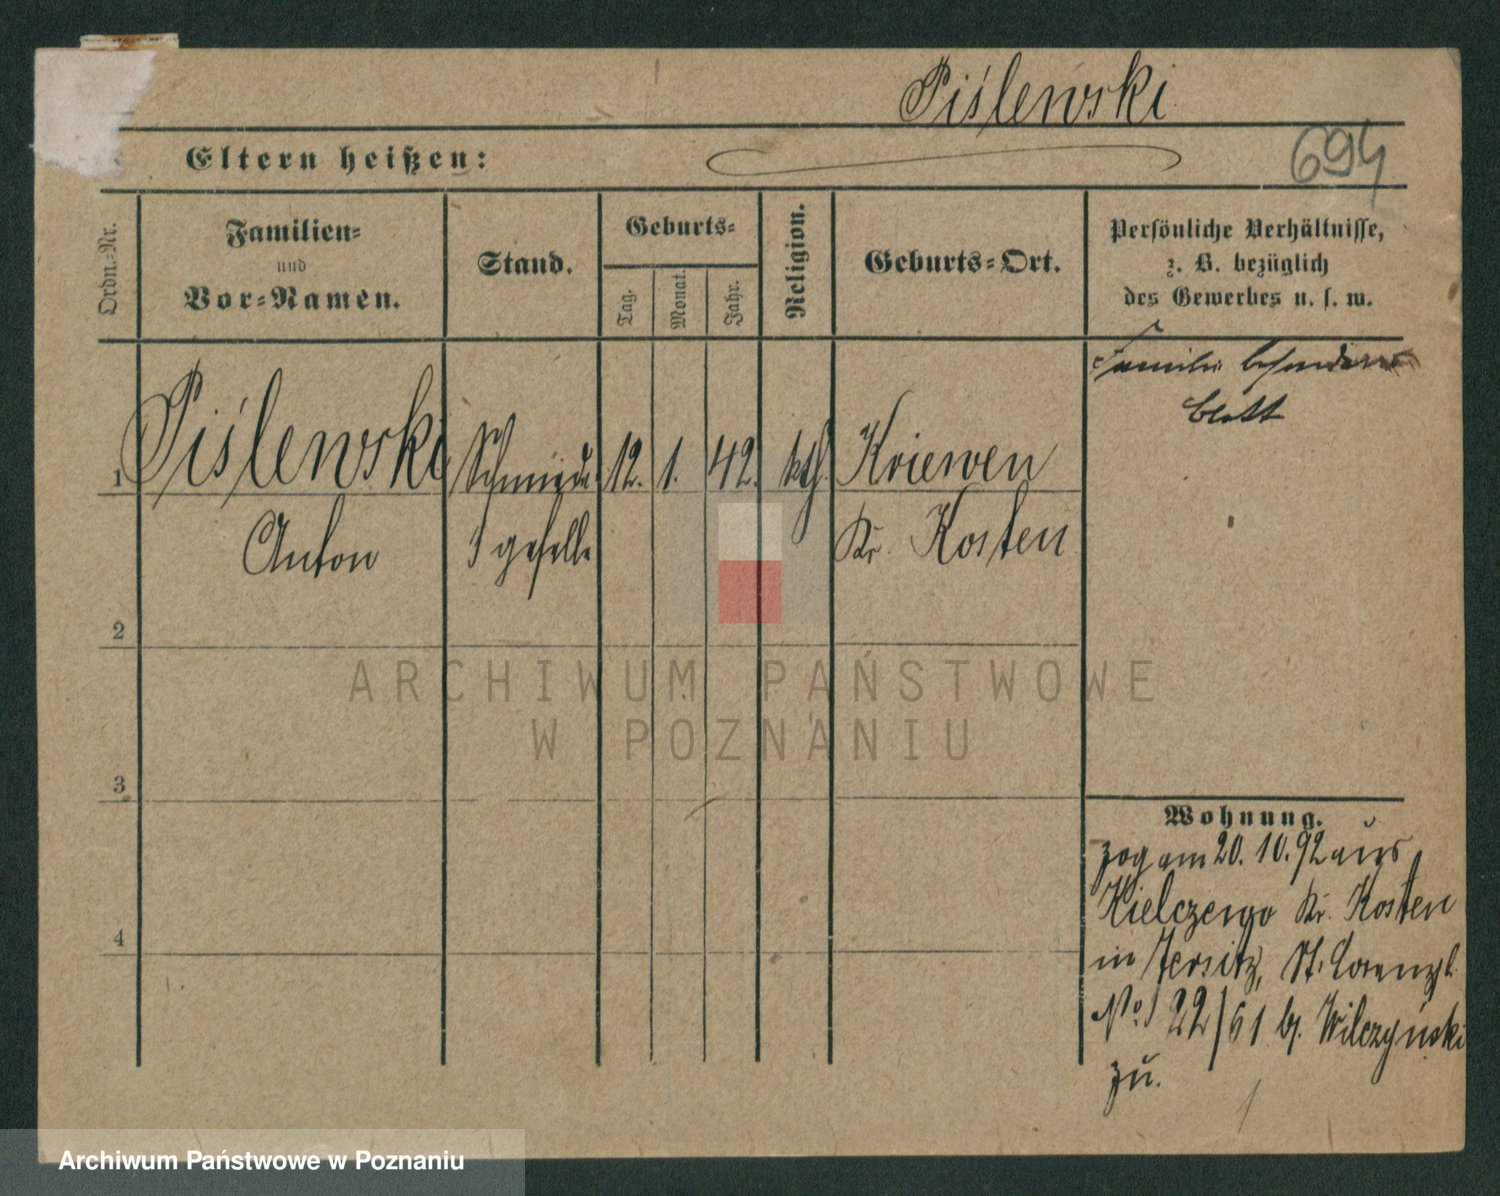 Piślewski
Eltern heißen:
694
Ordn.-Nr.
Familien-
und
Vor-Namen.
Stand.
Geburts-
Tag.
Monat.
Jahr.
Religion.
Geburts-Ort.
Persönliche Verhältnisse,
z. B. bezüglich
des Gewerbes u. s. w.
1
Piślewski
Schmiede
12.
1.
42.
kth.
Kriewen
Anton
geselle
Kr. Kosten
Familie besondere
blatt
2
3
4
Wohnung.
zog am 20.10.92 aus
Kielczewo Kr. Kosten
in Jersitz, St.
No. 22/61 b. Wilczyński
zu.
ARCHIWUM PAŃSTWOWE
W POZNANIU
Archiwum Państwowe w Poznaniu